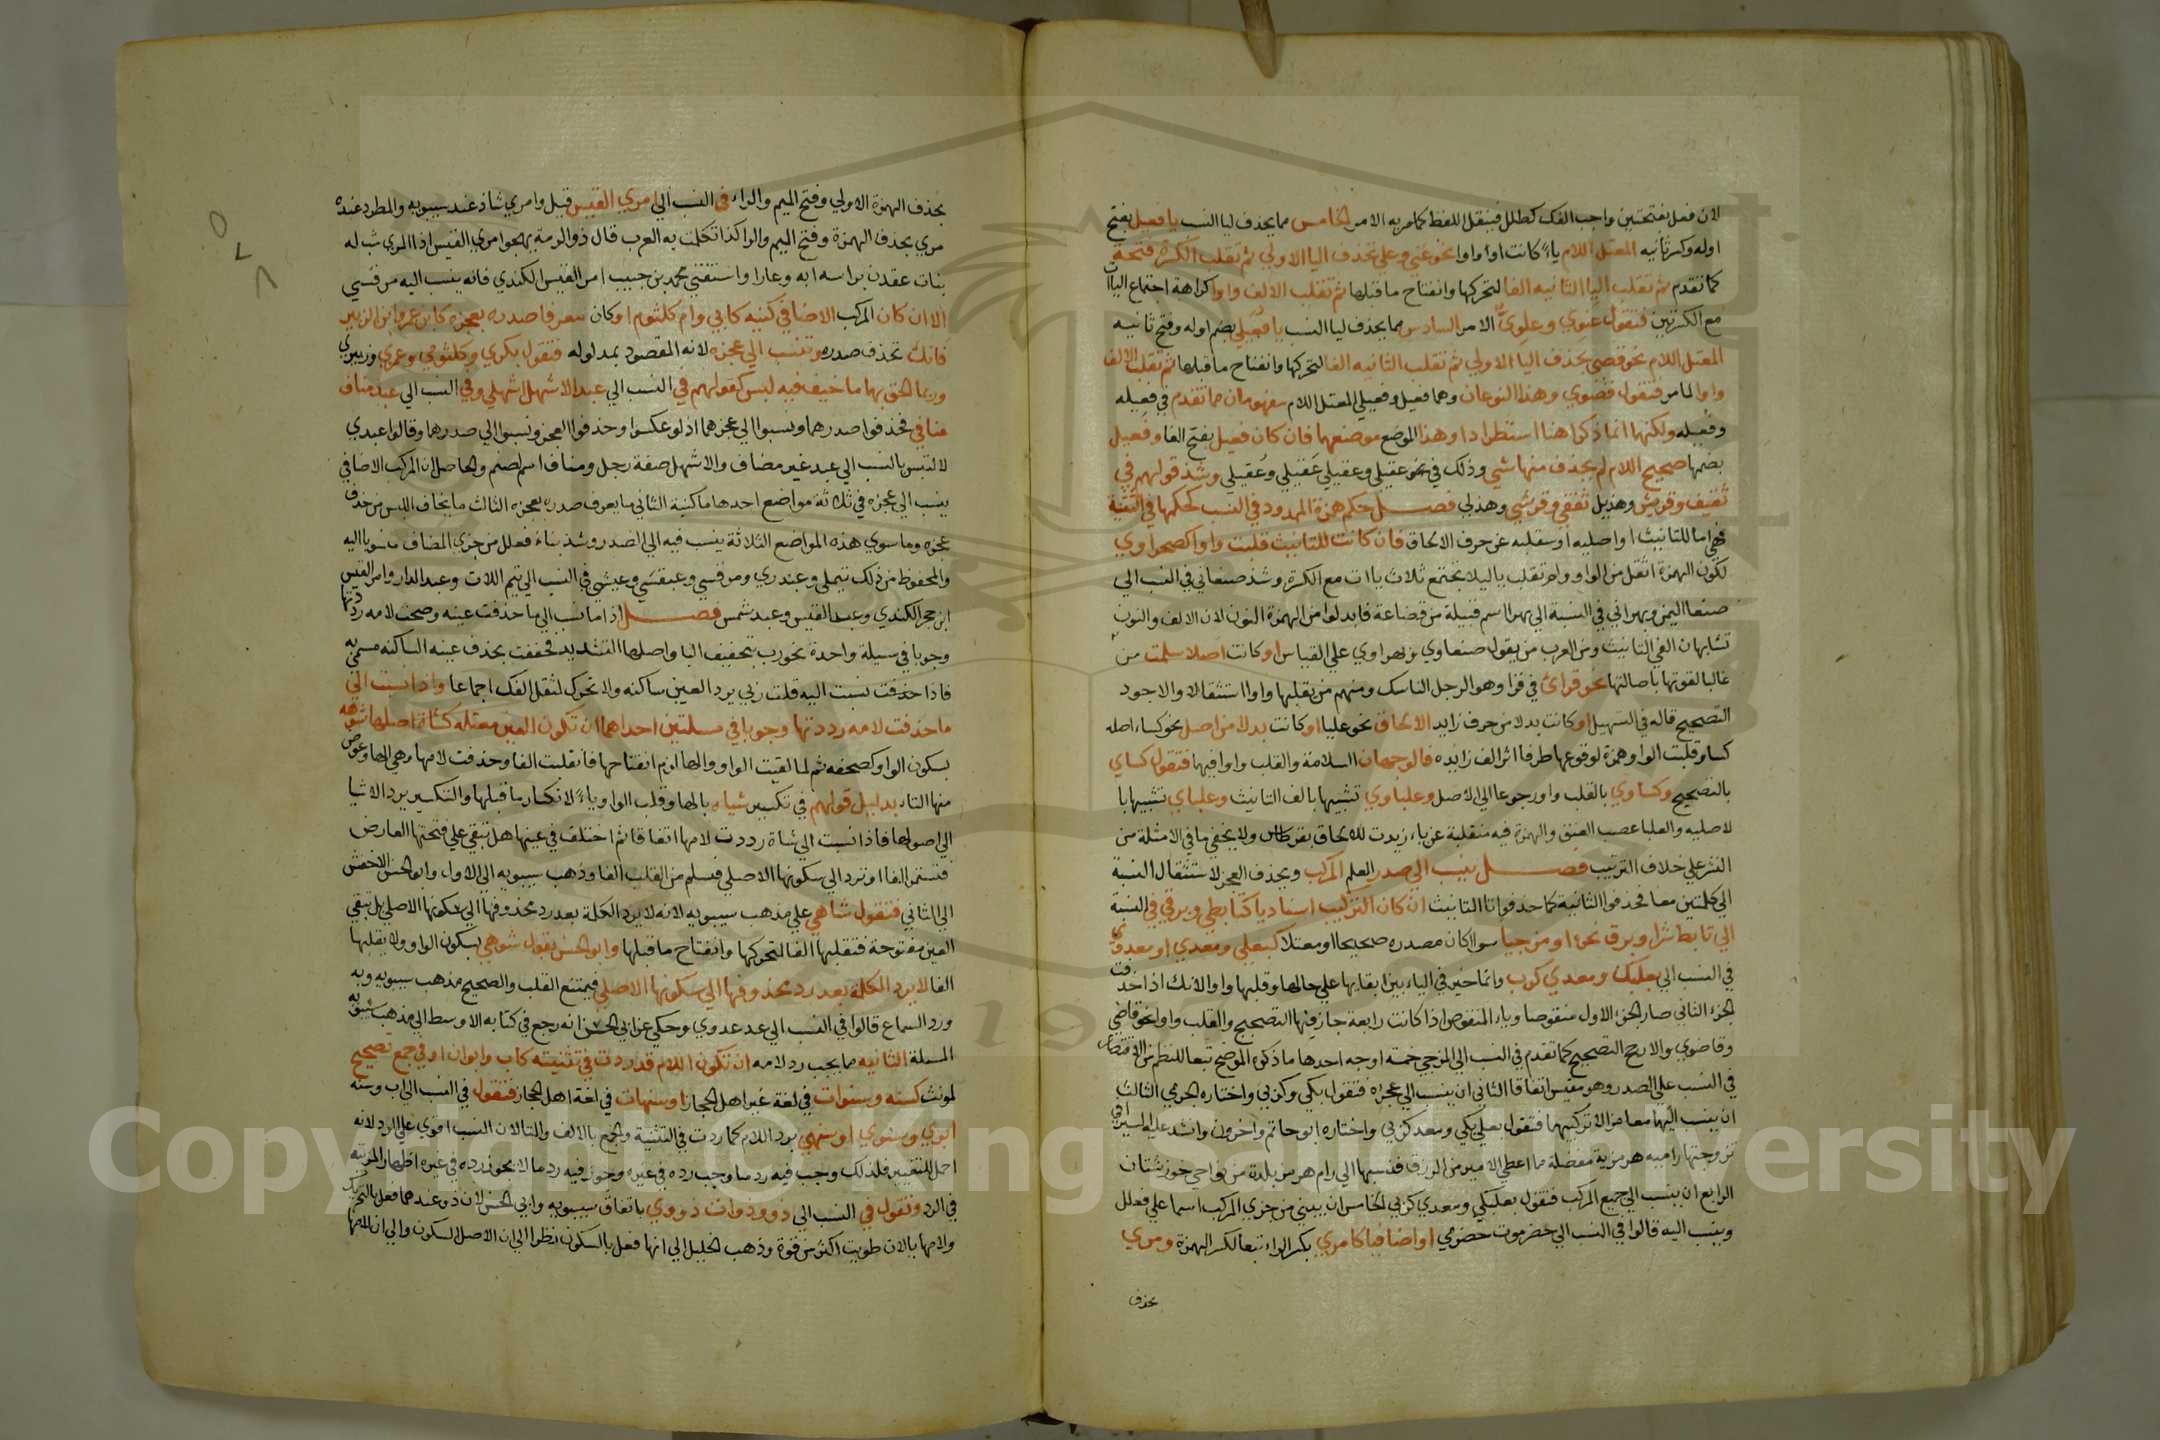 لان فعل بفتحتين واجب الفك كطلل فيثقل اللفظ كما مر به الامر الخامس مما يحذف ليا النسب يا فعيل بفتح
اوله وكسر ثانيه المعتل اللام ياً كانت او واوا نحو غني وعلي تحذف اليا الاولي ثم تقلب الكسرة فتحة
كما تقدم ثم تقلب اليا الثانيه الفا لتحركها وانفتاح ما قبلها ثم تقلب الالف واوا كراهة اجتماع اليآآت
مع الكسرتين فتقول غنوي وعلوي الامر السادس مما يحذف ليا النسب يا فُعَيل بضم اوله وفتح ثانيه
المعتل اللام نحو قصي بحذف اليا الاولي ثم تقلب الثانيه الفا لتحركها وانفتاح ما قبلها ثم تقلب الالف
واوا لما مر فتقول قصوي وهذا النوعان وهما فعيل وفعيل المعتل اللام مفهومان مما تقدم في فعيله
وفعيله ولكنها انما ذكرا هنا استطرادا وهذا الموضع موضعهما فان كان فعيل بفتح الفا وفعيل
بضمها صحيح اللام لم يحذف منها شي وذلك في نحو عقيل وعقيل عَقيلي وعُقيلي وشذ قولهم في
ثقيف وقريش وهذيل ثقفي وقرشي وهذلي فصل حكم همزة الممدود في النسب كحكمها في التثنية
فهي اما للتانيث او اصليه او منقلبه عن حرف الالحاق فان كانت للتانيث قلبت واوا كصحراوي
لكون الهمزة اثقل من الواو ولم تقلب يا ليلا تجتمع ثلاث ياات مع الكسرة وشذ صنعاني في النسب الي
صنعا اليمن وبهراني في النسبة الي بهرا اسم قبيلة من قضاعة فابدلوا من الهمزة النون لان الالف والنون
تشابهان الفي التانيث ومن العرب من يقول صنعاوي وبهراوي علي القياس او كانت اصلا سلمت من
غالبا لقوتها باصالتها نحو قرائي في قرا وهو الرجل الناسك ومنهم من يقلبها واوا استثقالا والاجود
التصحيح قاله في التسهيل او كانت بدلا من حرف زايد الالحاق نحو علبا او كانت بدلا من اصل نحو كساء اصله
كساو قلبت الواو همزة لوقوعها طرفا اثر الف زايده فالوجهان السلامة والقلب واوا فيها فتقول كساي
بالتصحيح وكساوي بالقلب واو رجوعا الي الاصل وعلباوي تشبيها بالف التانيث وعلباي تشبيها با
لاصليه والعلبا عصب العنق والهمزة فيه منقلبة عن ياء زيدت للالحاق بقرطاس ولا يخفي ما في الامثلة من
النشر علي خلاف الترتيب فصل ينسب الي صدر العلم المركب ويحذف العجز لاستثقال النسبة
الي كلمتين معا فحذفوا الثانية كما حذفوا تا التانيث ان كان التركيب اسناديا كتابطي وبرقي في النسبة
الي تابط شرا وبرق نحره او مزجيا سوا كان صدره صحيحا او معتلا كبعلي ومعدي او معدوي
في النسب الي بعلبك ومعدي كرب وانما خير في الياء بين ابقايها علي حالها وقلبها واوا لانك اذا حذفت
الجزء الثاني صار الجزء الاول منقوصا وياء المنقوص اذا كانت رابعة جاز فيها التصحيح والقلب واوا نحو قاضي
وقاضوي والارجح التصحيح كما تقدم في النسب الي المزجي خمسة اوجه احدها ما ذكره الموضح تبعا للنظم من الاقتصار
في النسب علي الصدر وهو مقيس اتفاقا الثاني ان ينسب الي عجزه فتقول بكي وكربي واختاره الجرمي الثالث
ان ينسب اليهما معا مزالا تركيبهما فتقول بعلي بكي ومعدي كربي واختاره ابو حاتم واخرون وانشد عليه السيرافي
تزوجتها رامية هرمزية بفضلة ما اعطي الامير من الرزق فنسبها الي رام هرمز بلدة من نواحي خوزستان
الرابع ان ينسب الي جميع المركب فتقول بعلبكي ومعدي كربي الخامس ان يبني من جزي المركب اسما علي فعلل
وينسب اليه قالوا في النسب الي حضرموت حضرمي او اضافيا كامري بكسر الراء تبعا لكسر الهمزة ومرئي
بحذف
بحذف الهمزة الاولي وفتح الميم والراء في النسب الي امري القيس قيل وامري شاذ عند سيبويه والمطرد عنده
مري بحذف الهمزة وفتح الميم والرا كذا تكلمت به العرب قال ذو الرمة يهجوا امري القيس اذا المري شب له
بنات عقدن براسه ابه وعارا واستثني محمد بن حبيب امر القيس الكندي فانه ينسب اليه مرقسي
الا ان كان المركب الاضافي كنيه كابي بكر وام كلثوم او كان معرفا صدره بعجزه كابن عمر وابن الزبير
فانك تحذف صدره وتنسب الي عجزه لانه المقصود بمدلوله فتقول بكري وكلثومي وعمري وزبيري
وربما الحق بها ما خيف فيه لبس كقولهم في النسب الي عبد الاشهل اشهلي وفي النسب الي عبد مناف
منافي فحذفوا صدرهما ونسبوا الي عجزهما اذ لو عكسوا وحذفوا العجز ونسبوا الي صدرهما وقالوا عبدي
لالتبس بالنسب الي عبد غير مضاف والاشهل صفة رجل ومناف اسم لصنم والحاصل ان المركب الاضافي
ينسب الي عجزه في ثلاثة مواضع احدها ما كنية الثاني ما يعرف صدره بعجزه الثالث ما يخاف اللبس من حذف
عجزه وما سوي هذه المواضع الثلاثة ينسب فيه الي الصدر وشذ بناء فعلل من جزي المضاف منسوبا اليه
والمحفوظ من ذلك تيملي وعبدري ومرقسي وعبقسي وعبشمي في النسب الي تيم اللات وعبد الدار وامر القيس
ابن حجر الكندي وعبد القيس وعبد شمس فصل اذا نسب الي ما حذفت عينه وصحت لامه رددتها
وجوبا في مسيلة واحدة نحو رب بتخفيف البا واصلها التشديد فخففت بحذف عينه الساكنه مسمي به
فاذا حذفت نسبت اليه قلت ربي برد العين ساكنه ولا تحرك لثقل الفك اجماعا واذا نسبت الي
ما حذفت لامه رددتها وجوبا في مسلتين احداهما ان تكون العين معتله كشاة اصلها شوهه
بسكون الواو كصحفه ثم لما لقيت الواو والها لزم انفتاحها فانقلبت الفا وحذفت لامها وهي الها وعوض
منها التاء بدليل قولهم في تكسير شياه بالها وقلب الواو ياءً لانكسار ما قبلها والتكسير يرد الاشيا
الي اصولها فاذا نسبت الي شاة رددت لامها اتفاقا ثم اختلف في عينها هل تبقي علي فتحتها العارض
فتستمر الفا او ترد الي سكونها الاصلي فتسلم من القلب الفا وذهب سيبويه الي الاول وابو الحسن الاخفش
الي الثاني فتقول شاهي علي مذهب سيبويه لانه لا يرد الكلمة بعد رد محذوفها الي سكونها الاصلي بل يبقي
العين مفتوحة فتقلبها الفا لتحركها وانفتاح ما قبلها وابو الحسن يقول شوهي بسكون الواو ولا يقلبها
الفا لا يرد الكلمة بعد رد محذوفها الي سكونها الاصلي فيمتنع القلب والصحيح مذهب سيبويه وبه
ورد السماع قالوا في النسب الي غد غدوي وحكي عن ابي الحسن انه رجع في كتابه الاوسط الي مذهب سيبويه
المسلة الثانيه مما يجب رد لامه ان تكون اللام قد ردت في تثنيته كاب وابوان او في جمع تصحيح
لمونث كسنه وسنوات في لغة غير اهل الحجاز او سنهات في لغة اهل الحجاز فتقول في النسب الي اب وسنه
ابوي وسنوي او سنهي برد اللام كما ردت في التثنية والجمع بالالف والتا لان النسب اقوي علي الرد لانه
احمل للتغيير فلذلك وجب فيه رد ما وجب رده في غيره وجوز فيه رد ما لا يجوز رده في غيره اظهارا لمزيته
في الرد وتقول في النسب الي ذو وذوات ذووي باتفاق سيبويه وابي الحسن لان ذو عندهما فعل بالتحريك
ولامها يا لان طويت اكثر من قوة وذهب الخليل الي انها فعل بالسكون نظرا الي ان الاصل السكون والي ان لامها
Copyright © King Saud University